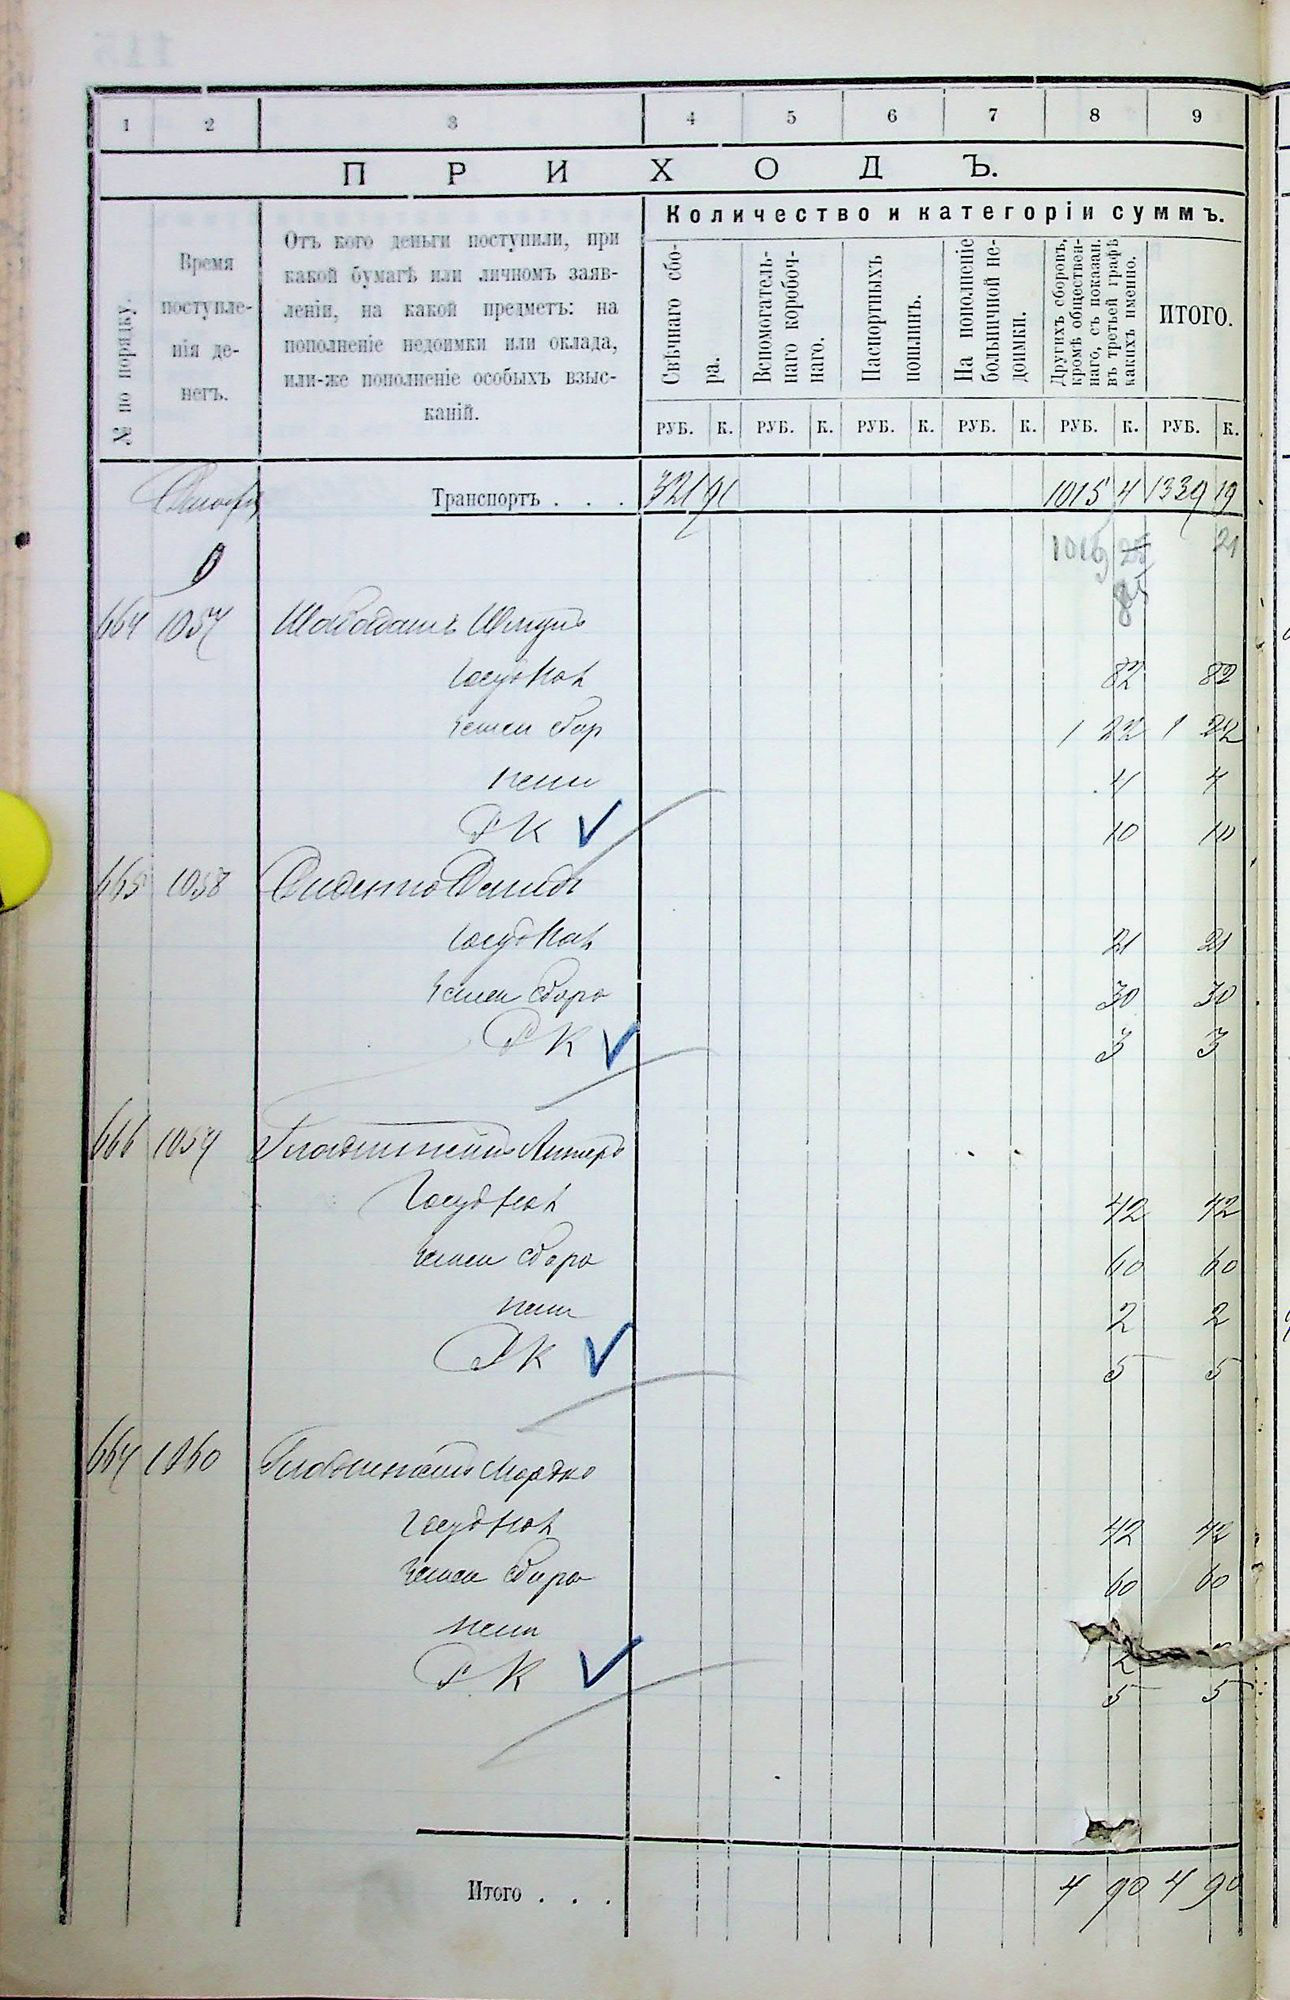 1 2 3 4 5 6 7 8 9
ПРИХОДЪ.
№ по порядку.
Время
поступле-
нія де-
негъ.
Отъ кого деньги поступили, при
какой бумагѣ или личномъ заяв-
леніи, на какой предметъ: на
пополненіе недоимки или оклада,
или-же пополненіе особыхъ взыс-
каній.
Количество и категоріи суммъ.
Свѣчнаго сбо-
ра.
Вспомогатель-
наго коробоч-
наго.
Паспортныхъ
пошлинъ.
На пополненіе
больничной не-
доимки.
Другихъ сборовъ,
кромѣ обществен-
наго, съ показан.
въ третьей графѣ
какихъ именно.
ИТОГО.
РУБ. К. РУБ. К. РУБ. К. РУБ. К. РУБ. К. РУБ. К.
Транспортъ . . . 321 91 1015 4 1339 19
21
85
664 1057
Госуд Нал 82 82
Земск сбор 1 22 1 22
пени 4 4
Р К 10 10
665 1058
Госуд Нал 21 21
Земск сбора 30 30
Р К 3 3
666 1059
Госуд Нал 42 42
Земск сбора 60 60
пени 2 2
Р К 5 5
667 1060 Мордко
Госуд Нал 42 42
Земск сбора 60 60
пени 2
Р К 5 5
Итого . . . 4 90 4 90